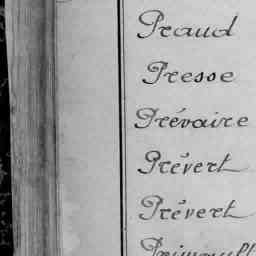 Praud
Presse
Prévaire
Prévert
Prévert